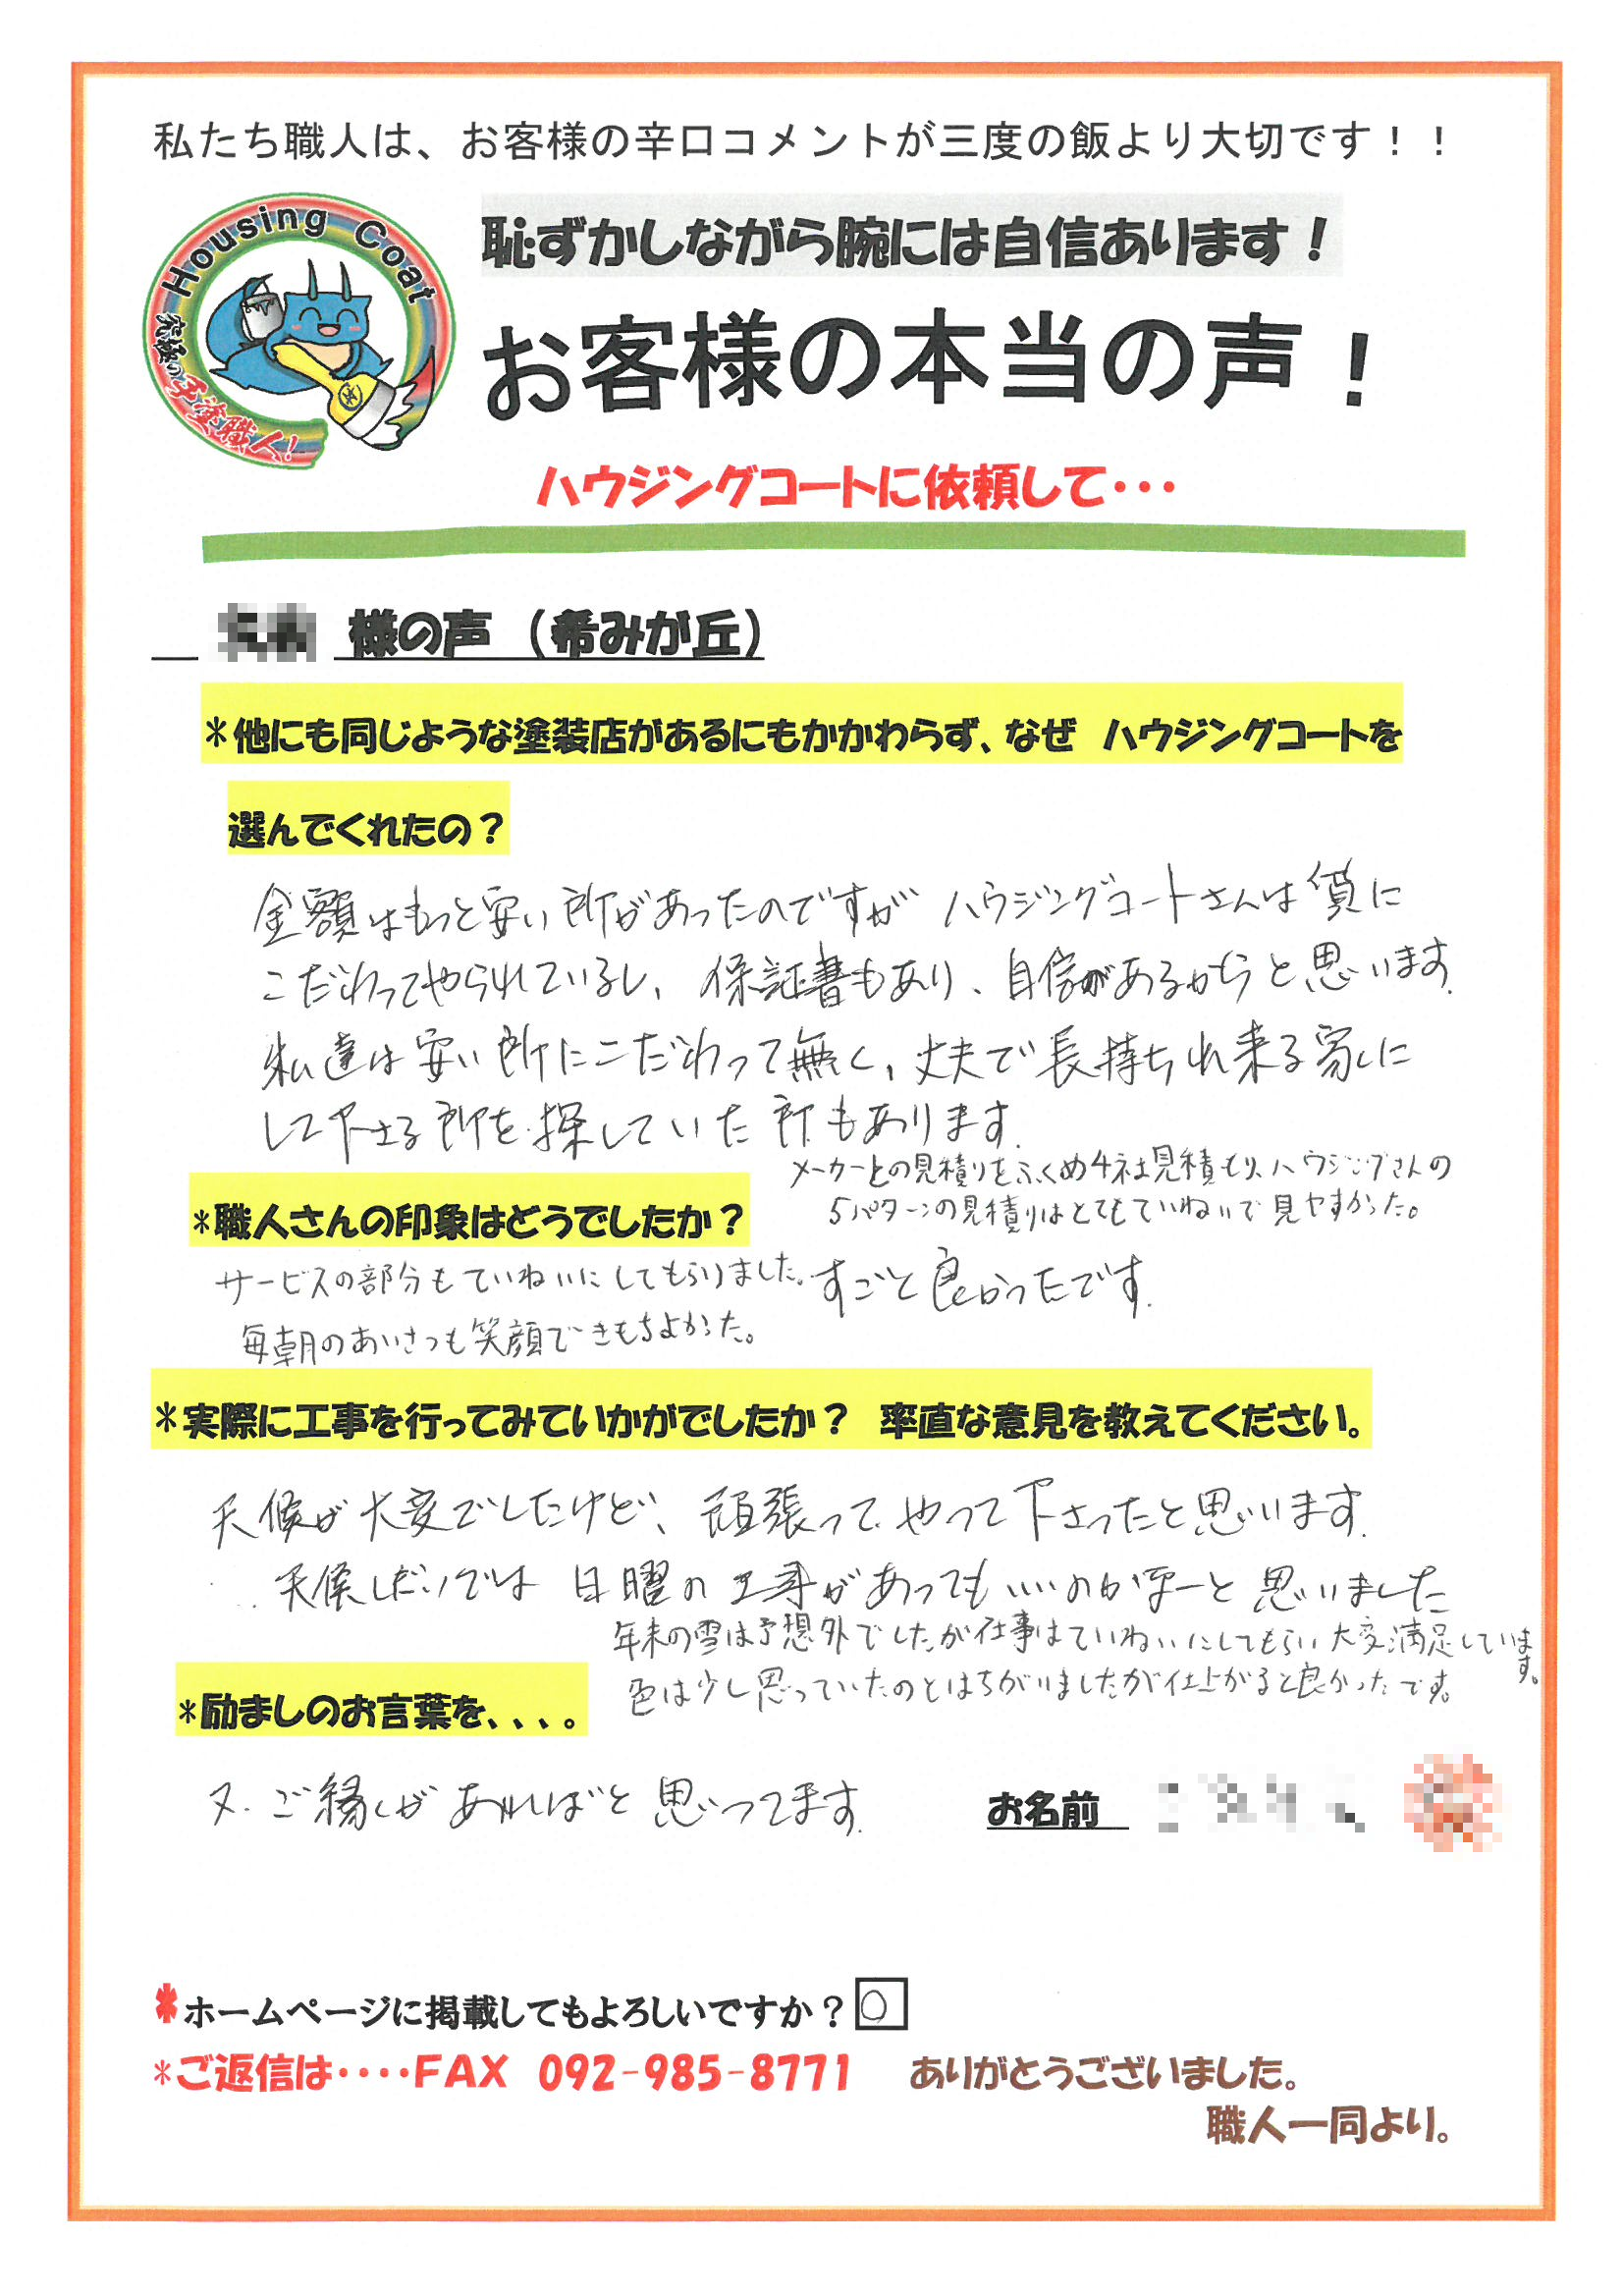 私たち職人は、お客様の辛口コメントが三度の飯より大切です！！
Housing Coat
究極の手塗職人！
恥ずかしながら腕には自信あります！
お客様の本当の声！
ハウジングコートに依頼して・・・
様の声（希みが丘）
*他にも同じような塗装店があるにもかかわらず、なぜ ハウジングコートを
選んでくれたの？
金額はもっと安い所があったのですが ハウジングコートさんは質に
こだわってやられているし、保証書もあり、自信があるからと思います。
私達は安い所にこだわって無く、丈夫で長持ち出来る家に
して下さる所を探していた所もあります。
メーカーとの見積りをふくめ4社見積もり、ハウジングさんの
5パターンの見積りはとてもていねいで見やすかった。
*職人さんの印象はどうでしたか？
サービスの部分もていねいにしてもらいました。すごと良かったです。
毎朝のあいさつも笑顔できもちよかった。
*実際に工事を行ってみていかがでしたか？ 率直な意見を教えてください。
天候が大変でしたけど、頑張ってやって下さったと思います。
天候しだいでは 日曜の工事があってもいいのかなーと思いました
年末の雪は予想外でしたが仕事はていねいにしてもらい大変満足しています。
色は少し思っていたのとはちがいましたが仕上がると良かったです。
*励ましのお言葉を、、、、。
又、ご縁があればと思ってます。
お名前
*ホームページに掲載してもよろしいですか？○
*ご返信は・・・・FAX 092-985-8771 ありがとうございました。
職人一同より。